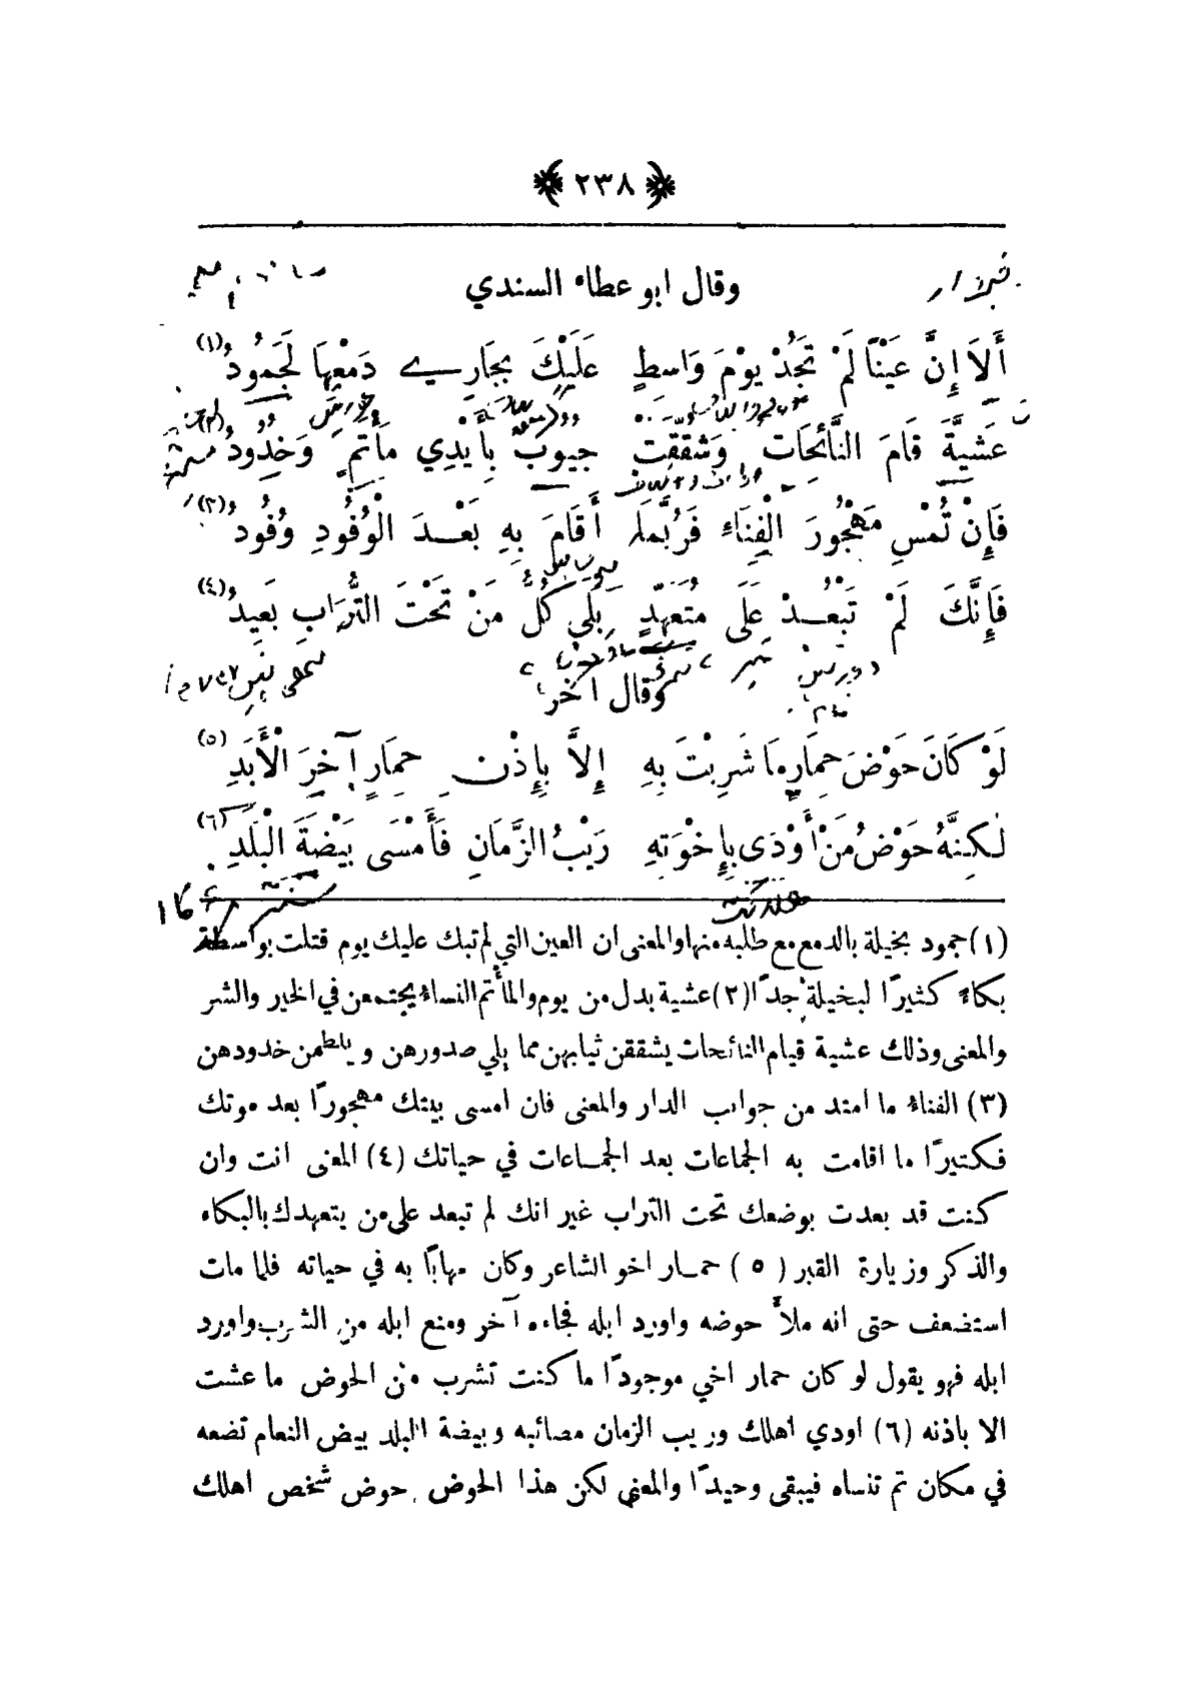 ٢٣٨
وقال ابو عطاء السندي
أَلاَ إِنَّ عَيْنًا لَمْ تَجُدْ يَوْمَ وَاسِطٍ عَلَيْكَ بِجَارِي دَمْعِهَا لَجَمُودُ (١)
عَشِيَّةَ قَامَ النَّائِحَاتُ وَشُقِّقَت جُيُوبٌ بِأَيْدِي مَأْتَمٍ وَخُدُودُ (٢)
فَإِنْ تُمْسِ مَهْجُورَ الْفِنَاءِ فَرُبَّمَا أَقَامَ بِهِ بَعْدَ الْوُفُودِ وُفُودُ (٣)
فَإِنَّكَ لَمْ تَبْعُدْ عَلَى مُتَعَهِّدٍ بَلَى كُلُّ مَنْ تَحْتَ التُّرَابِ بَعِيدُ (٤)
وقال آخر
لَوْ كَانَ حَوْضَ حِمَارٍ مَا شَرِبْتَ بِهِ إِلاَّ بِإِذْنِ حِمَارٍ آخِرَ الْأَبَدِ (٥)
لٰكِنَّهُ حَوْضُ مَنْ أَوْدَى بِإِخْوَتِهِ رَيْبُ الزَّمَانِ فَأَمْسَى بَيْضَةَ الْبَلَدِ (٦)
(١) جمود بخيلة بالدمع مع طلبه منها والمعنى ان العين التي لم تبك عليك يوم قتلت بواسطة
بكاءً كثيرًا لبخيلة جدًا (٢) عشية بدل من يوم والمأتم النساء يجتمعن في الخير والشر
والمعنى وذلك عشية قيام النائحات يشققن ثيابهن مما يلي صدورهن ويلطمن خدودهن
(٣) الفناء ما امتد من جوانب الدار والمعنى فان امسى بيتك مهجورًا بعد موتك
فكثيرًا ما اقامت به الجماعات بعد الجماعات في حياتك (٤) المعنى انت وان
كنت قد بعدت بوضعك تحت التراب غير انك لم تبعد على من يتعهدك بالبكاء
والذكر وزيارة القبر (٥) حمار اخو الشاعر وكان مهابًا به في حياته فلما مات
استضعف حتى انه ملأ حوضه واورد ابله فجاءه آخر ومنع ابله من الشرب واورد
ابله فهو يقول لو كان حمار اخي موجودًا ما كنت تشرب من الحوض ما عشت
الا باذنه (٦) اودي اهلك وريب الزمان مصائبه وبيضة البلد بيض النعام تضعه
في مكان ثم تنساه فيبقى وحيدًا والمعنى لكن هذا الحوض حوض شخص اهلك